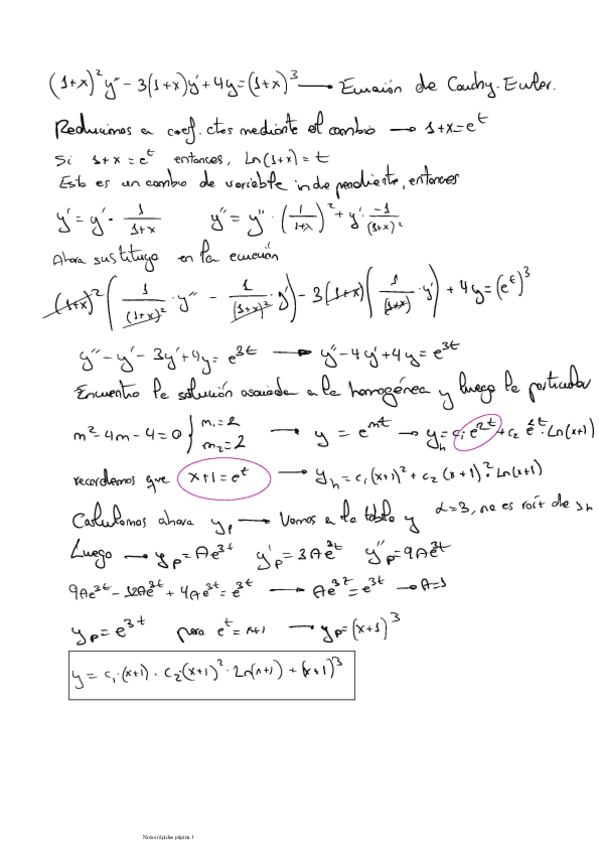 (1+x)² y'' - 3(1+x)y' + 4y = (1+x)³ → Ecuación de Cauchy-Euler.
Reducimos a coef. ctes mediante el cambio → 1+x = e^t
Si 1+x = e^t entonces, Ln(1+x) = t
Esto es un cambio de variable independiente, entonces
y' = y' · 1/(1+x) y'' = y'' · (1/(1+x))² + y' · -1/(1+x)²
Ahora sustituyo en la ecuación
(1+x)² (1/(1+x)² · y'' - 1/(1+x)² · y') - 3(1+x)(1/(1+x) · y') + 4y = (e^t)³
y'' - y' - 3y' + 4y = e^3t → y'' - 4y' + 4y = e^3t
Encuentro la solución asociada a la homogénea y luego la particular
m² - 4m - 4 = 0 { m₁ = 2 m₂ = 2 → y = e^mt → y_h = c₁ e^2t + c₂ e^2t · Ln(x+1)
recordemos que x+1 = e^t → y_h = c₁(x+1)² + c₂(x+1)² · Ln(x+1)
Calculamos ahora y_p → Vamos a la tabla y α=3, no es raíz de
Luego → y_p = Ae^3t y'_p = 3Ae^3t y''_p = 9Ae^3t
9Ae^3t - 12Ae^3t + 4Ae^3t = e^3t → Ae^3t = e^3t → A=1
y_p = e^3t pero e^t = x+1 → y_p = (x+1)³
y = c₁·(x+1) · c₂·(x+1)² · Ln(x+1) + (x+1)³
Notas rápidas página 1